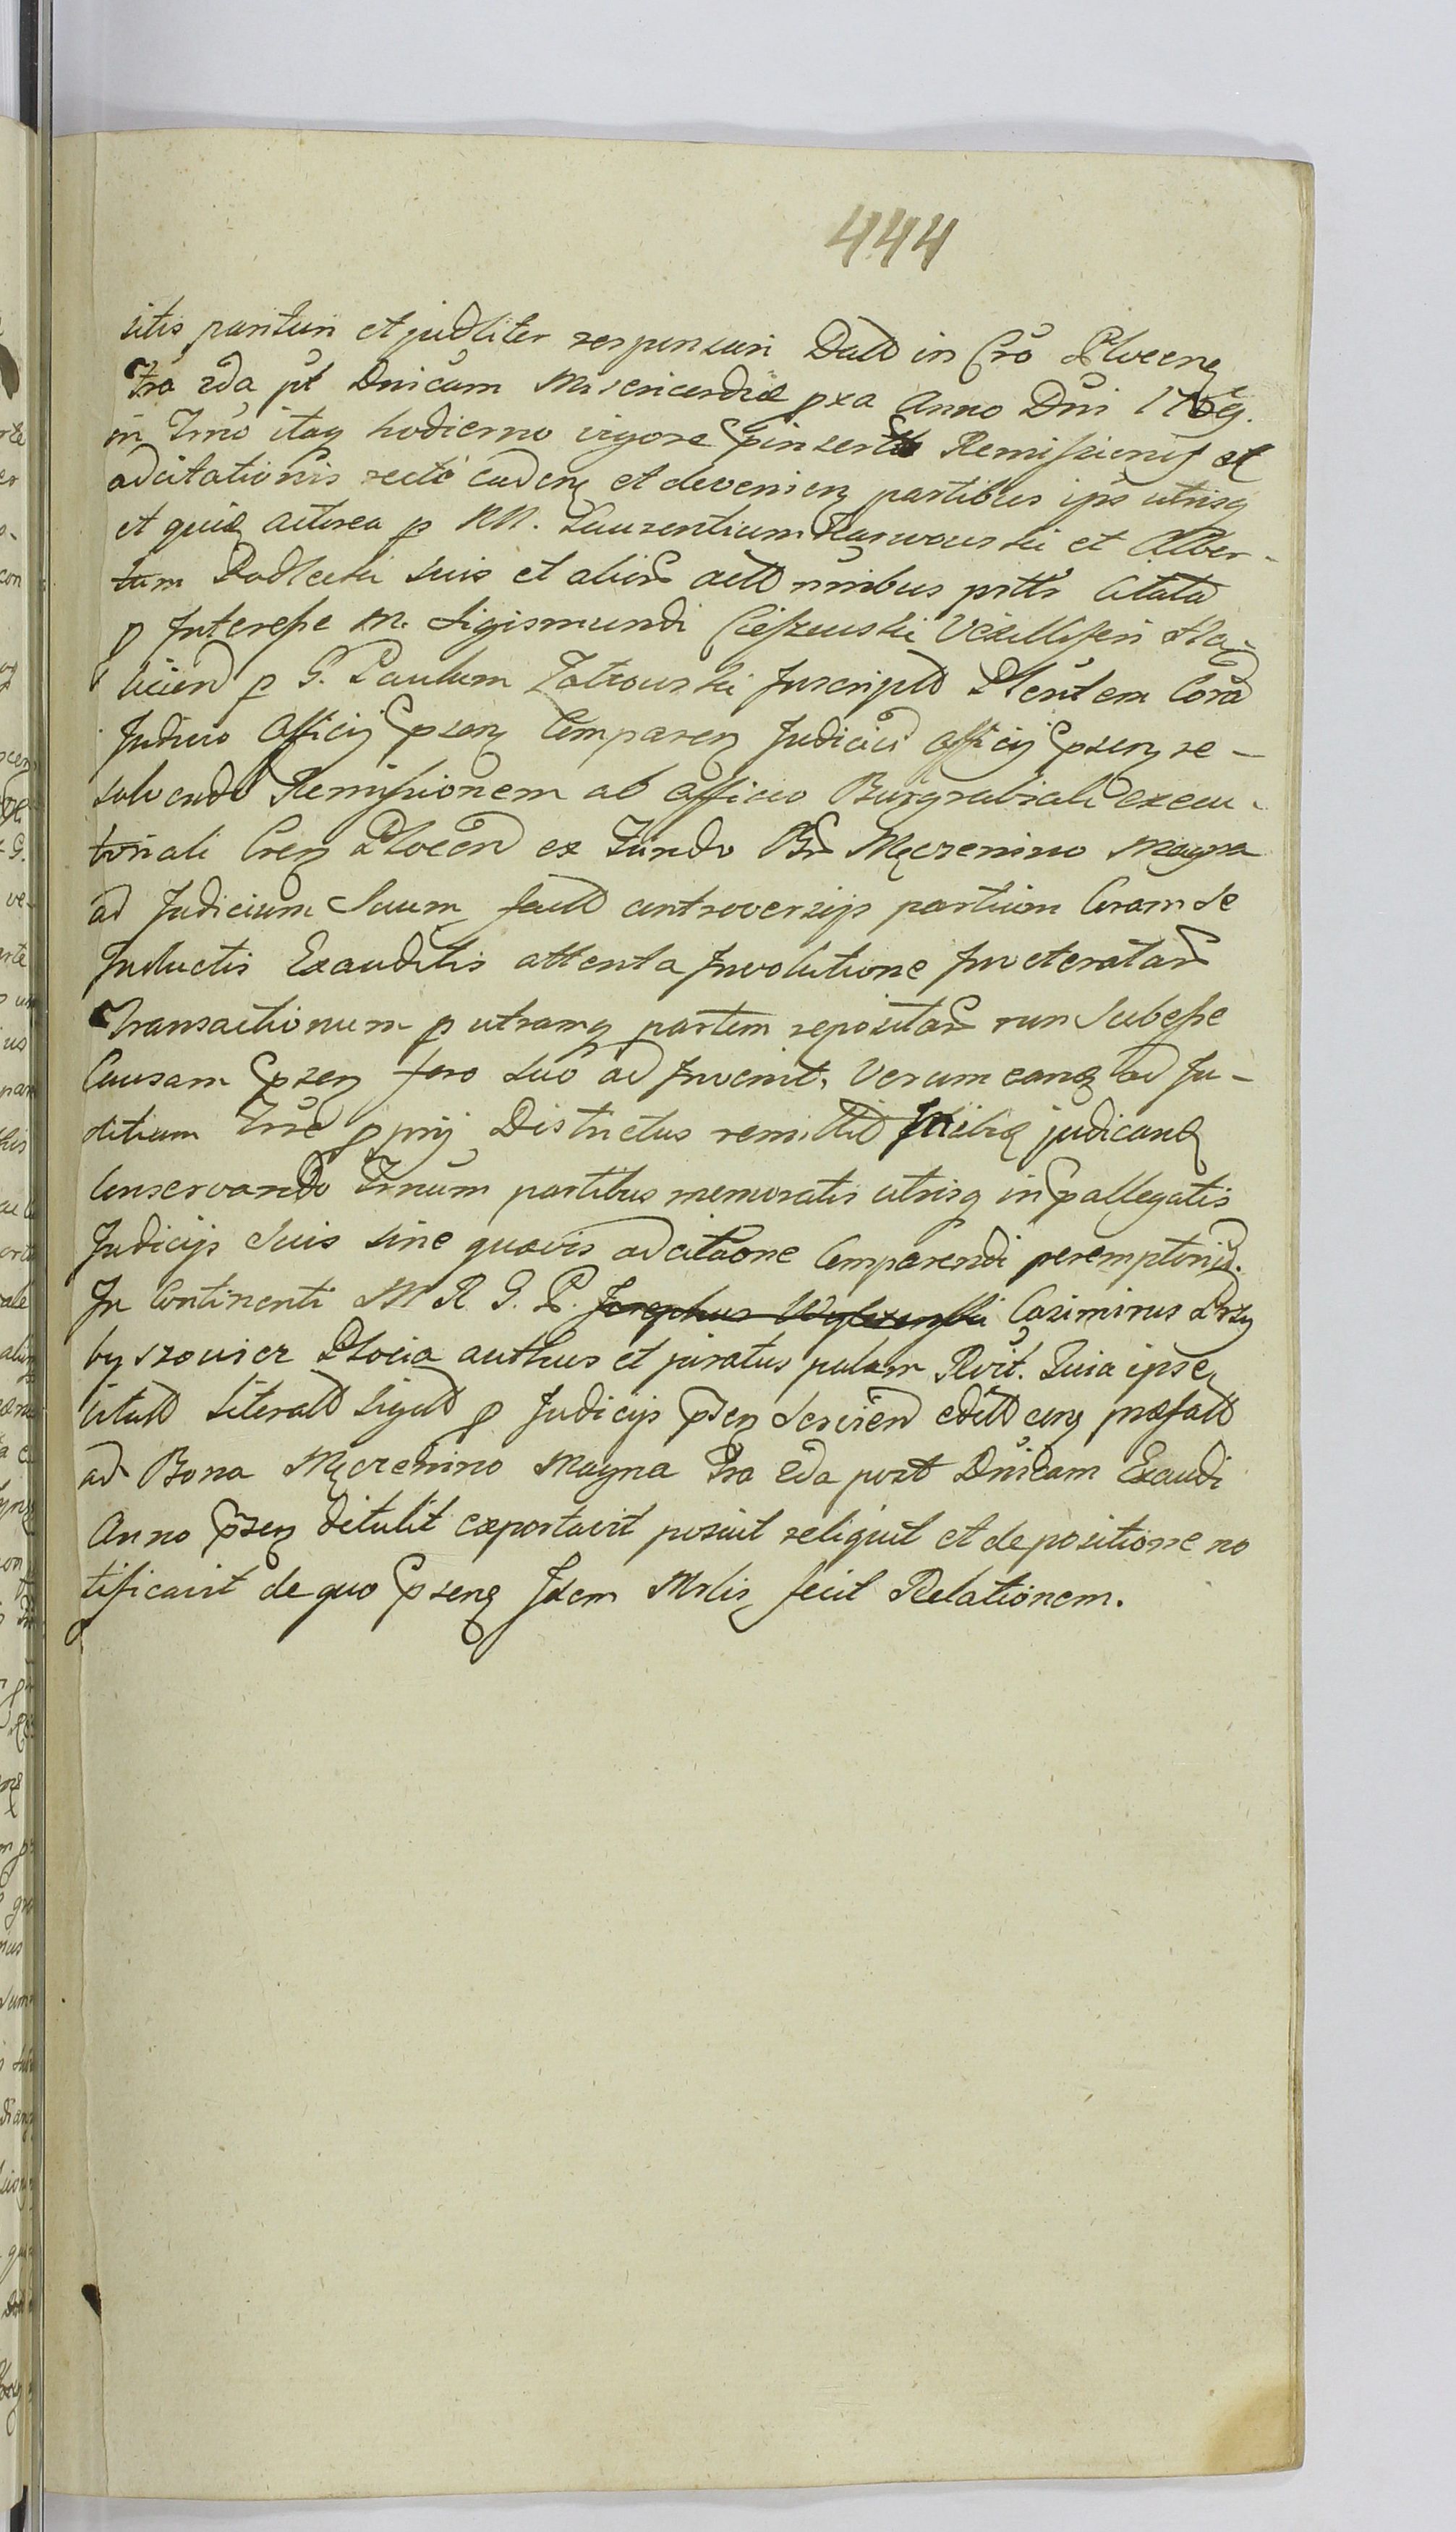 444
sitis parituri et judliter responsuri Datt in Cro Plocen
Fra 2da pt Dnicam Misericordiæ pxa Anno Dni 1769.
in Trno itaq hodierno vigore pinserta Remissionis et
adcitationis recte caden et devenien partibus ips utrisq
et quid actorea p MM. Laurentium Karwowski et Alber-
tum Dodlecki suis et alior actt nnibus prtti Citata
p Interesse M. Sigismundi Cieszewski Vexilliferi
p G. Paulum Zatrowski Inscriptt Plentem Cora
Judicio Officij psen Comparen Judiciu officij psen re-
solvendo Remissionem ab officio Burgrabiali execu-
toriali Cren Plocen ex Fundo Br Męczenino Magna
ad Judicium Suum factt controversijs partium Coram se
Inductis Exauditis attenta Involutione Inveteratar
Transactionum p utramq partem repositar non Subesse
Causam psen foro suo ad Invenit, Verum eanq ad Ju-
ditium Trre ppnj Districtus remittit judicand
Conservando Trnum partibus memoratis utrisq in pallegatis
Judicijs Suis sine quavis adcitaone Comparendi peremptorie.
In Continenti M R. G. P. Josephus Casimirus Przy
byszowicz Plocia authus et juratus palam Rvit. Quia ipse
Citatt Literatt Sigatt p Judicijs psen Servien editt cum præfatt
ad Bona Męczenino Magna Fra 2da post Dnicam Exaudi
Anno psen detulit exportavit posuit reliquit et de positione no
tificavit de quo psens Idem Mrlis fecit Relationem.